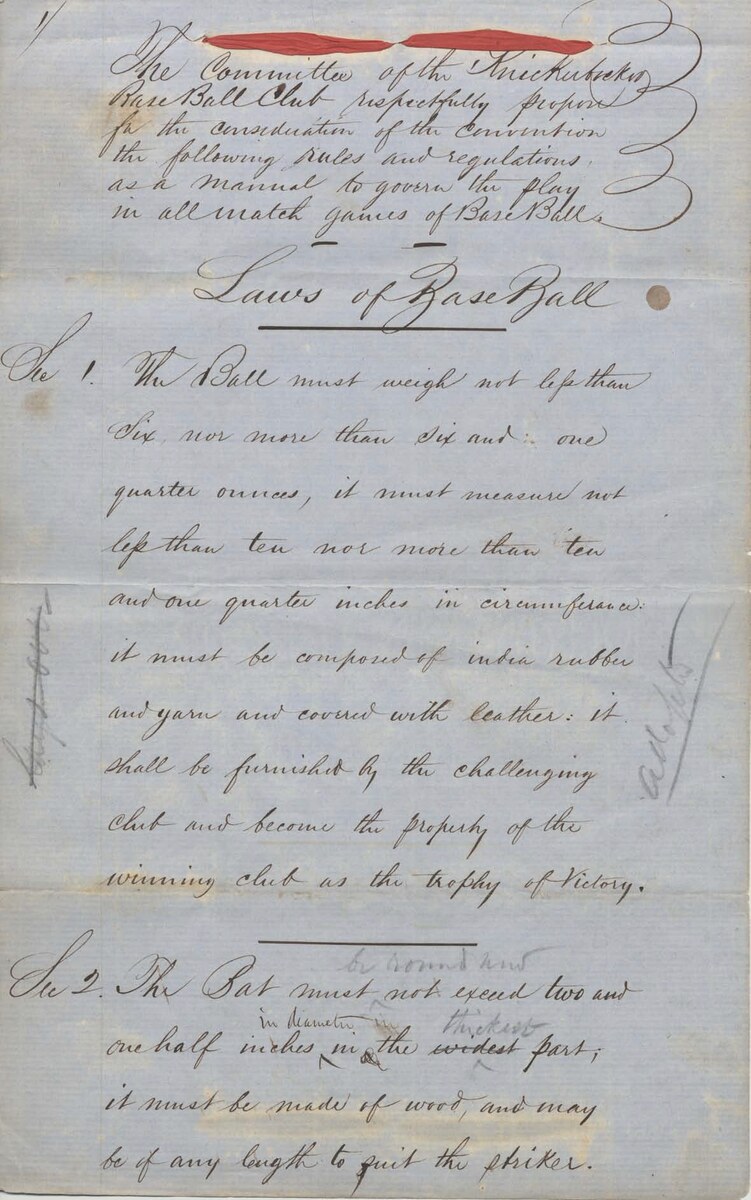 The Committee of the Knickerbocker
Base Ball Club respectfully propose
for the consideration of the convention
the following rules and regulations,
as a manual to govern the play
in all match games of Base Ball.
Laws of Base Ball
Sec 1. The Ball must weigh not less than
Six, nor more than six and one
quarter ounces, it must measure not
less than ten nor more than ten
and one quarter inches in circumferance:
it must be composed of india rubber
and yarn and covered with leather: it
shall be furnished by the challenging
club and become the property of the
winning club as the trophy of Victory.
adopted
be round and
Sec 2. The Bat must not exceed two and
in diameter in thickest
one half inches in the widest part;
it must be made of wood, and may
be of any length to suit the striker.